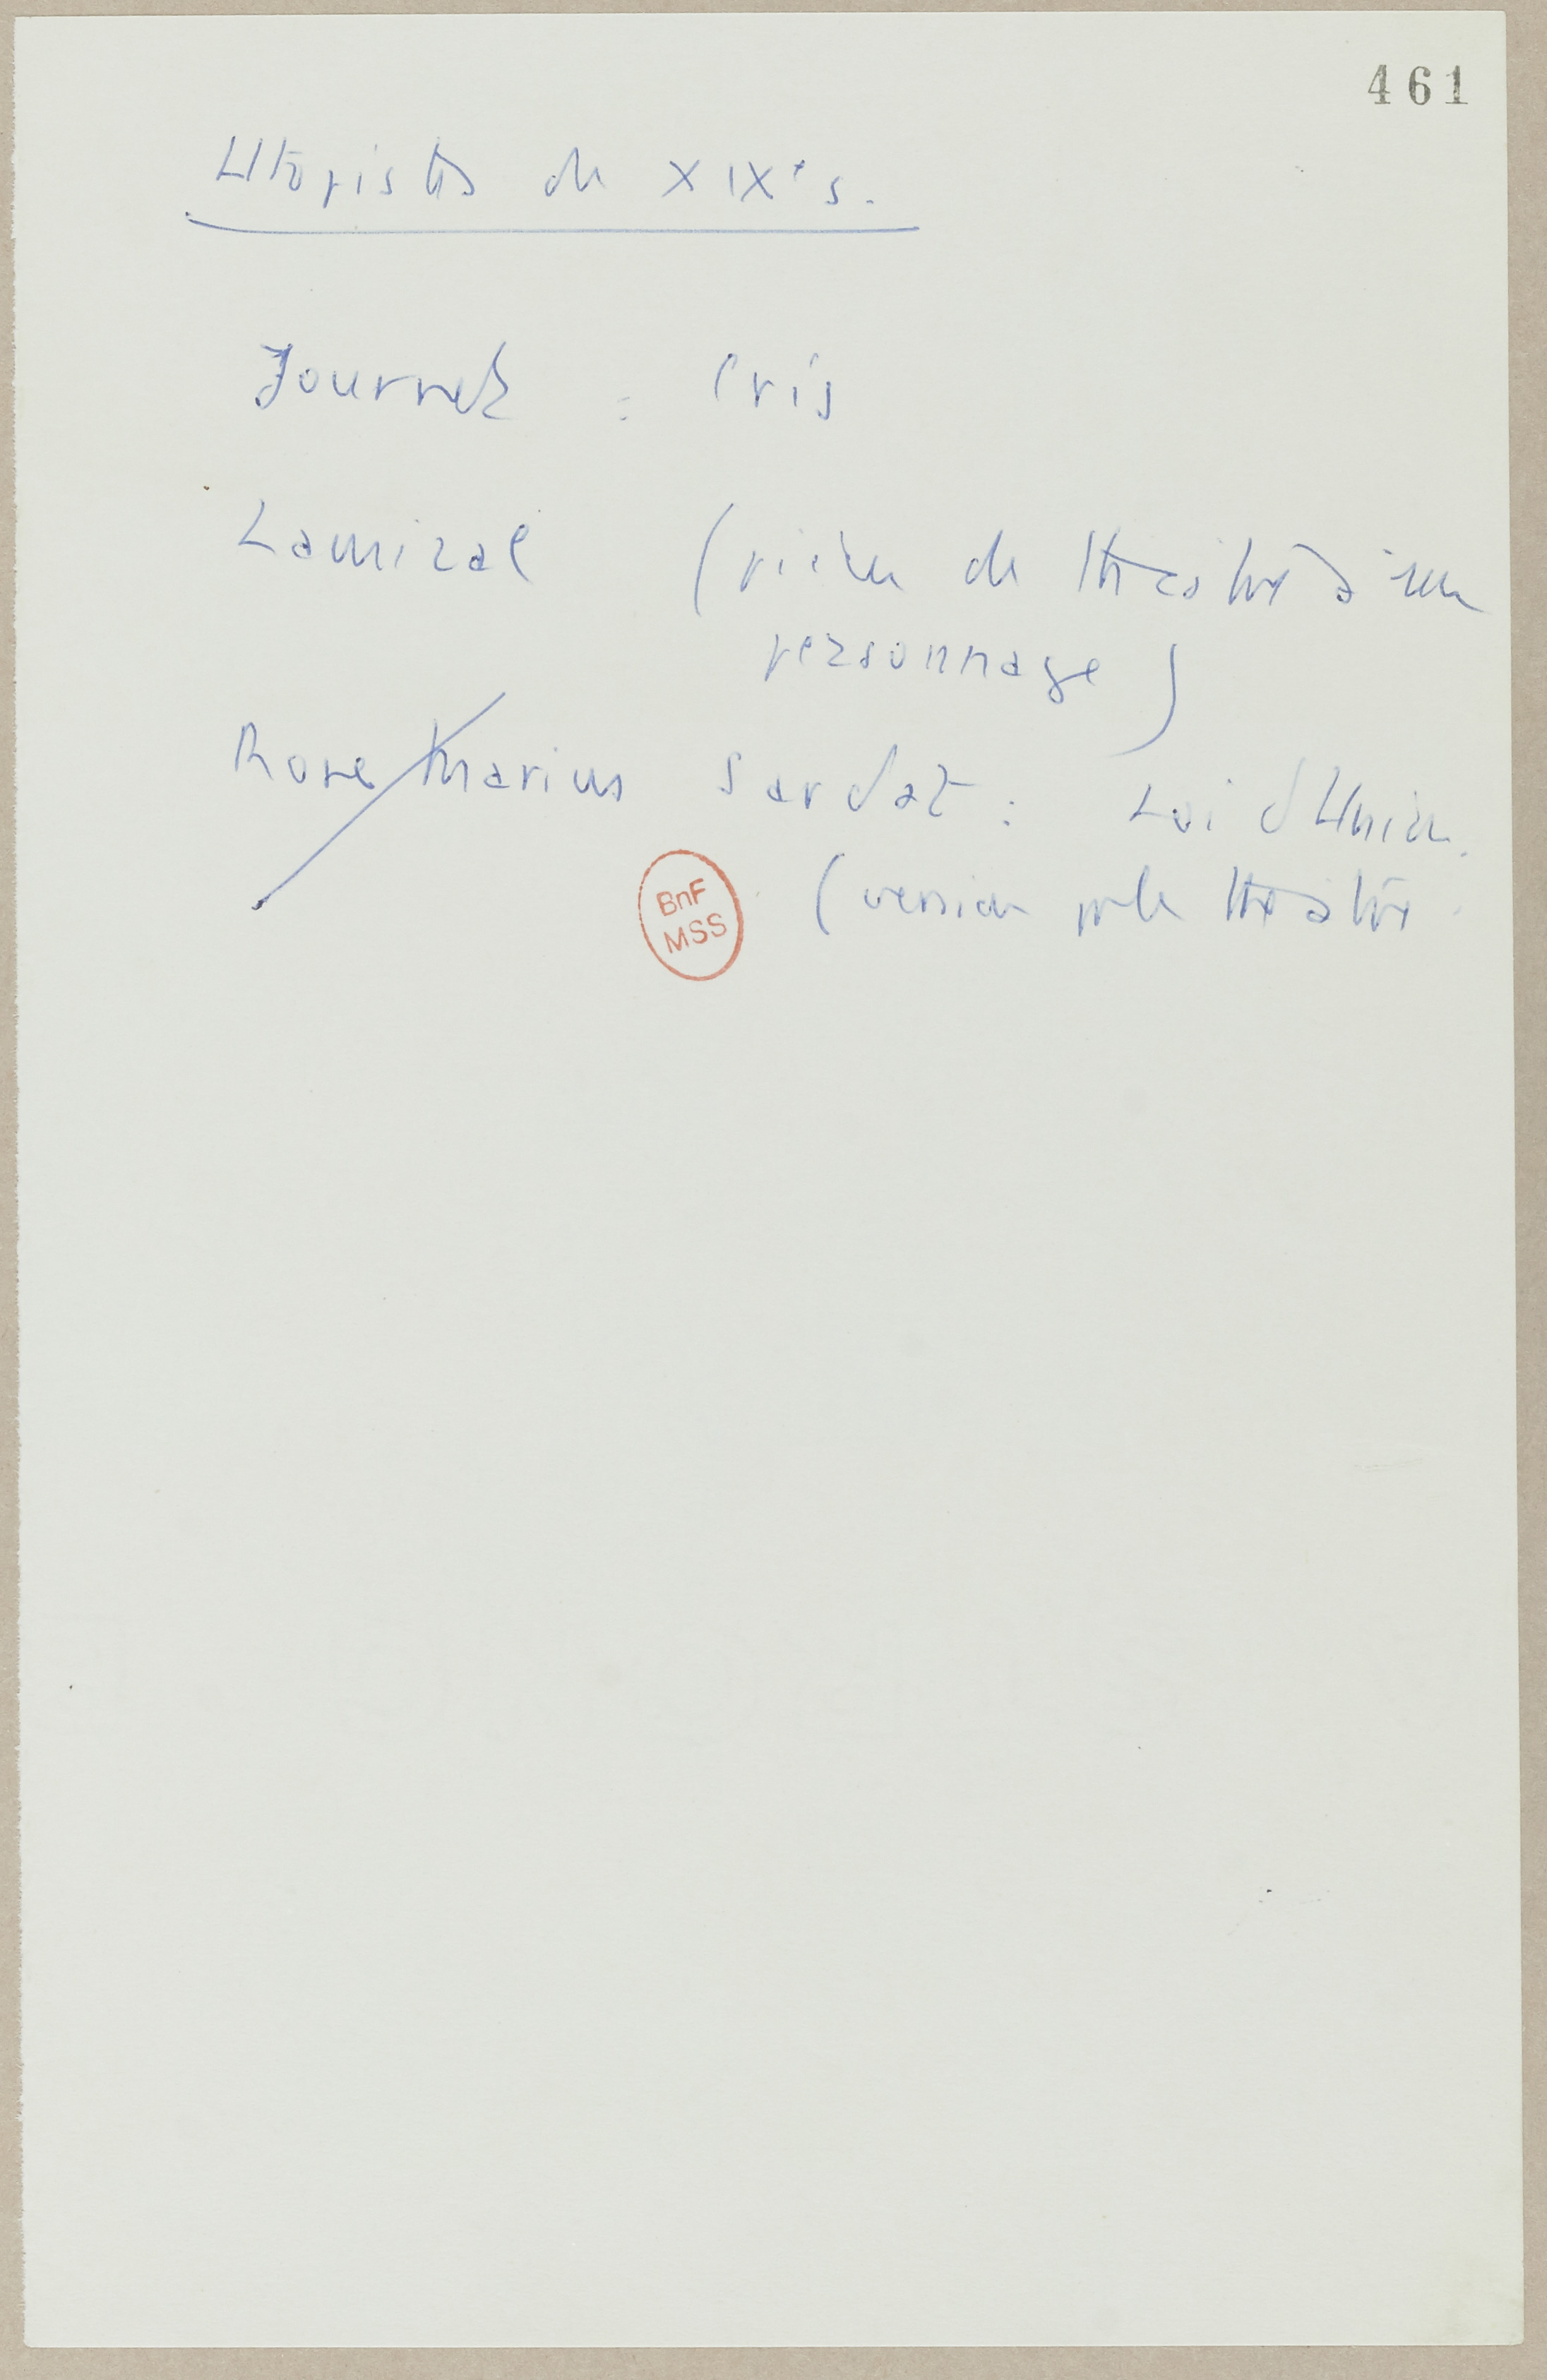 461
Utopistes du XIXe s.
Journet : Cris
Lamiral (pièces de théâtre à un
personnage)
Rose Marius Sardat : Loi d'Union.
(version pr le théâtre
BnF
MSS